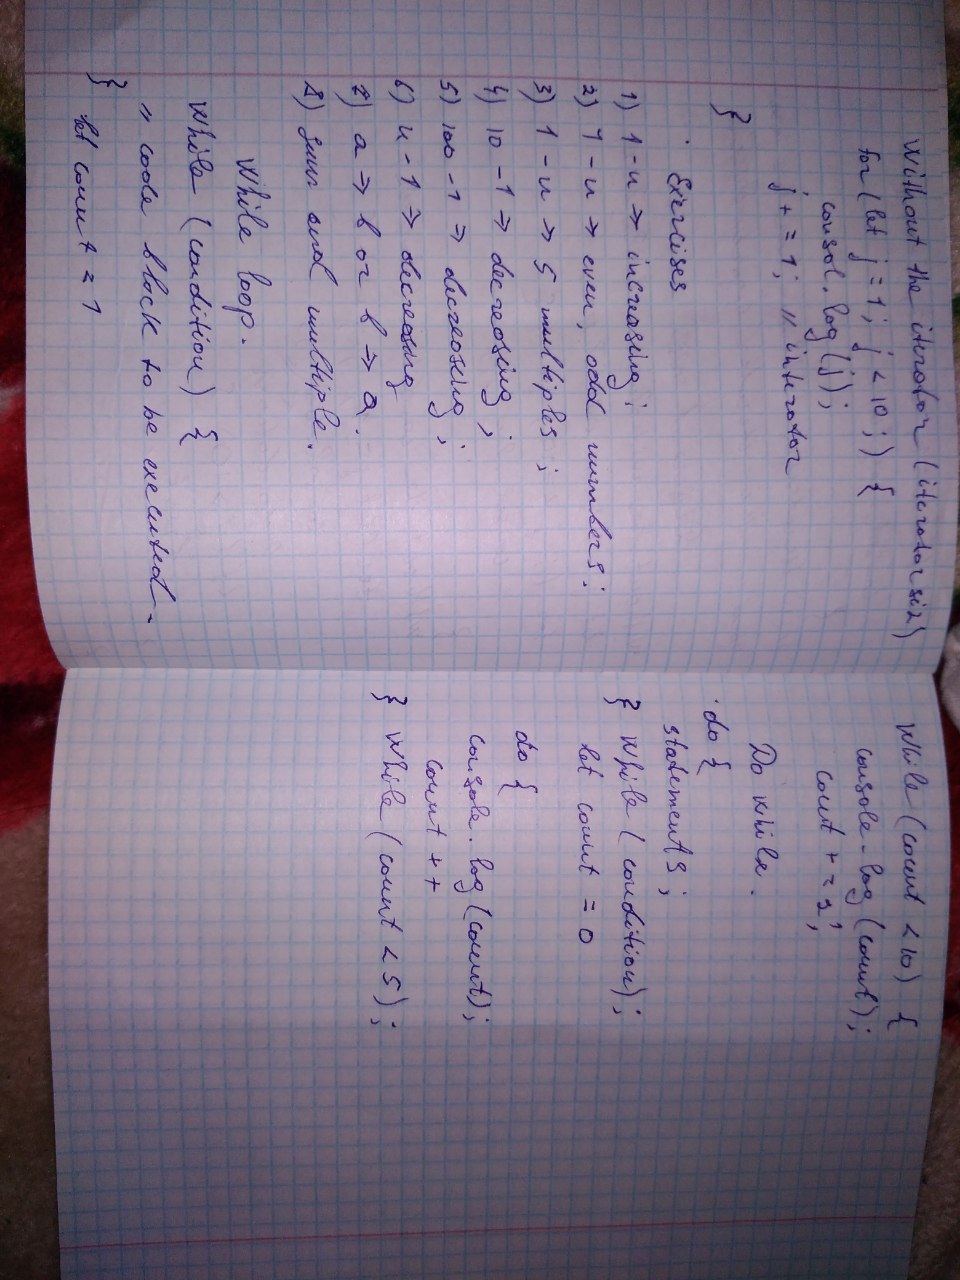 Without the iterator (iteratorsiz)
for (let j = 1; j < 10;) {
consol.log(j);
j += 1; // interator
}
· Exercises
1) 1 - n => increasing;
2) 1 - n => even, odd numbers;
3) 1 - n => 5 multiples;
4) 10 - 1 => decreasing;
5) 100 - 1 => decreasing;
6) n - 1 => decreasing
7) a => b or b => a.
8) sum and multiple.
While loop.
While (condition) {
// code block to be executed
}
let count = 1
While (count < 10) {
console.log(count);
count + =
Do while.
do {
statements;
} While (condition);
let count = 0
do {
console.log(count);
count ++
} While (count < 5);